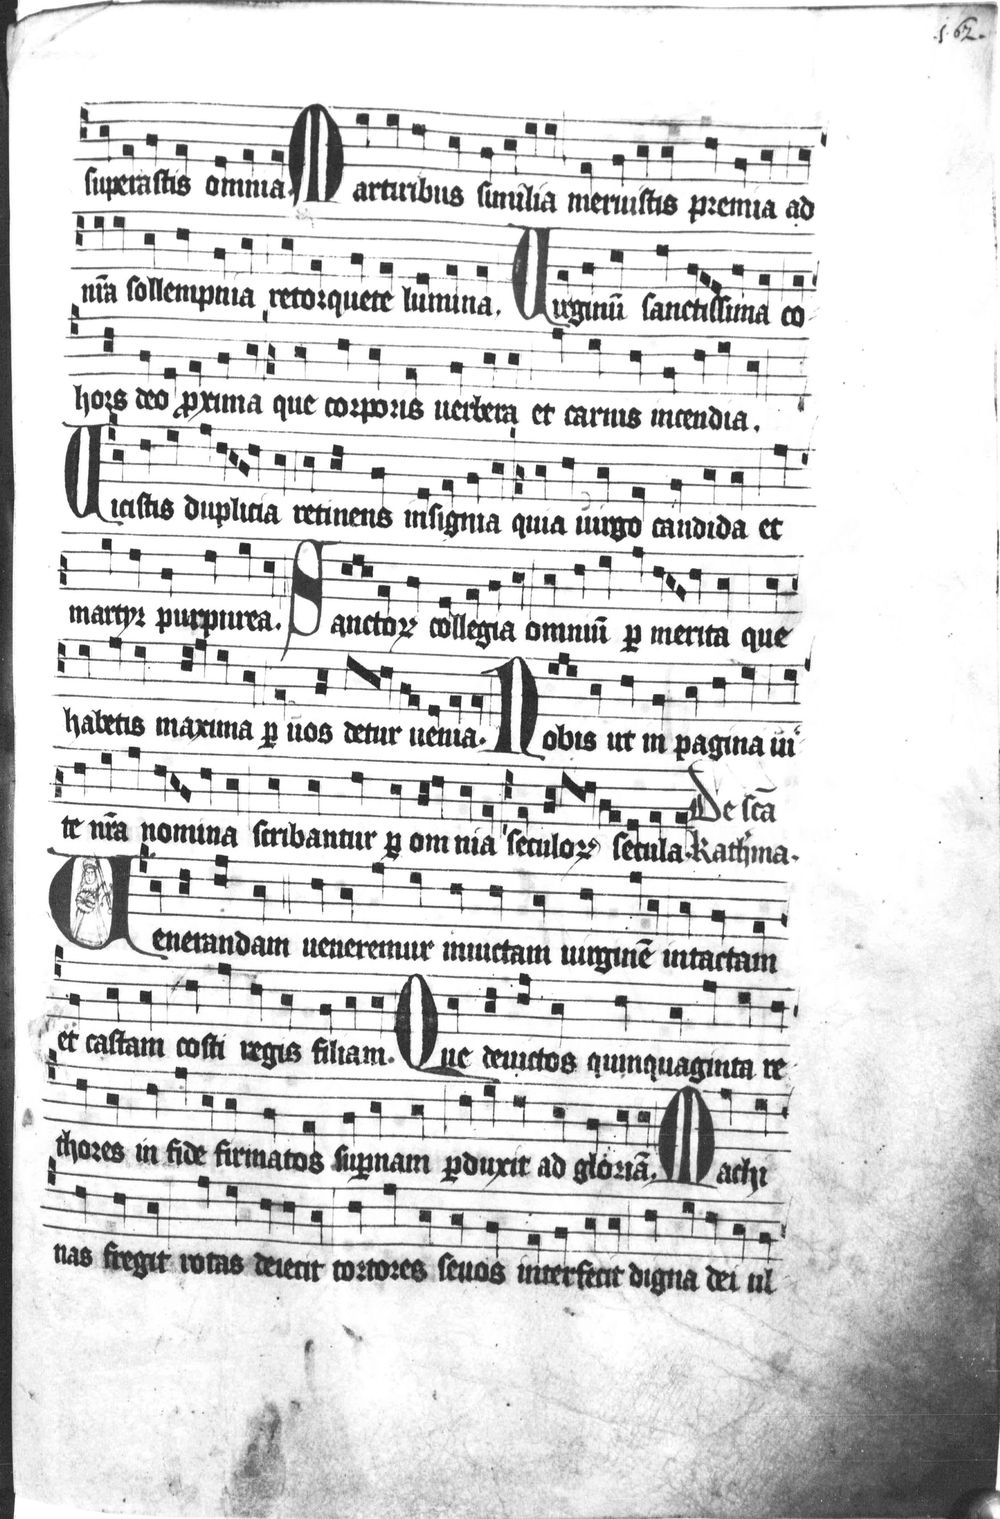 .s. 62.
superastis omnia. Martiribus similia meruistis premia ad
nr̄a sollempnia retorquete lumina. Uirginū sanctissima co
hors deo ꝓxima que corporis uerbera et carnis incendia.
Uicistis duplicia retinens insignia quia uirgo candida et
martyr purpurea. Sanctoꝝ collegia omniū ꝑ merita que
habetis maxima ꝑ uos detur uenia. Nobis ut in pagina ui
te nr̄a nomina scribantur ꝑ omnia seculoꝝ secula.
De sc̄a
Kathina.
Uenerandam ueneremur inuictam uirginē intactam
et castam costi regis filiam. Que deuictos quinquaginta re
thores in fide firmatos suꝑnam ꝑduxit ad gloriā. Machi
nas fregit rotas deiecit tortores seuos interfecit digna dei ul